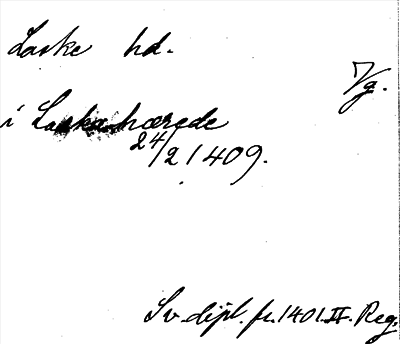 Laske hd.
Vg.
i Laska hærede
24/2 1409.
Sv. dipl. fr. 1401. II. Reg.